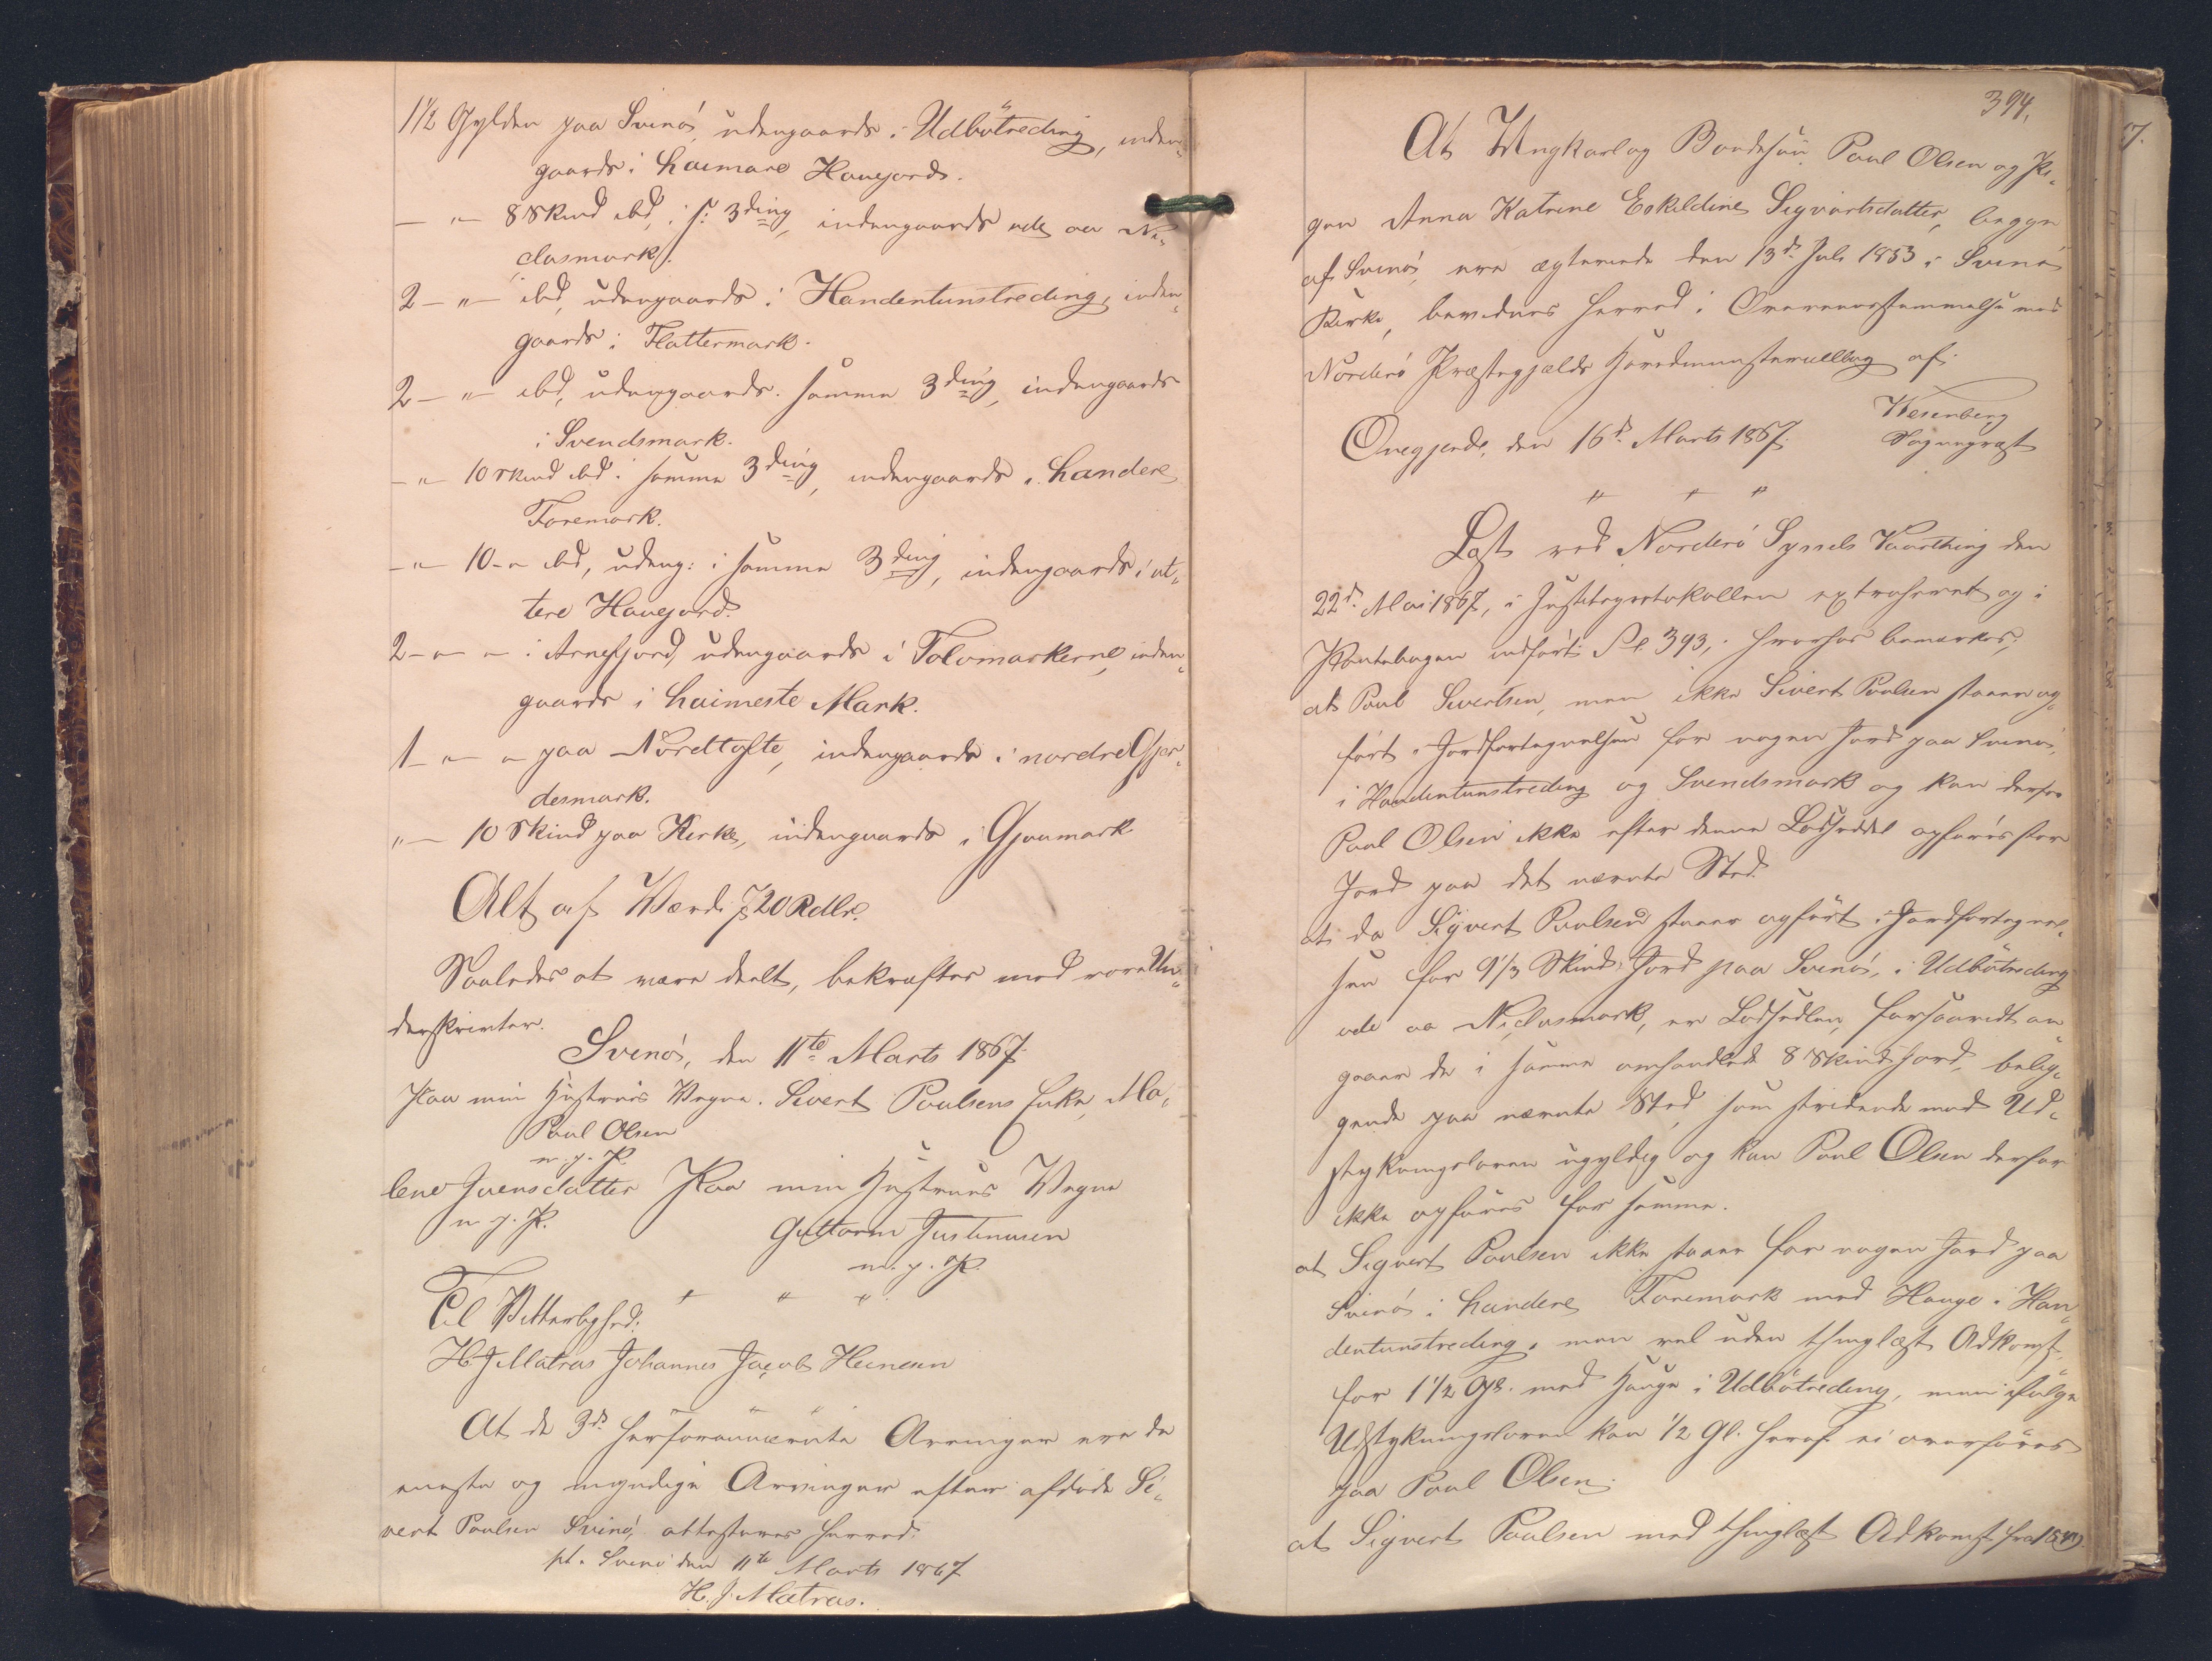 1½ Gylden paa Svinö, udengaards i Udbötreding, inden-
gaards i Haimare Havejords.
— " — 8 Skind ibd, i s: 3ding, indengaards ude aa Ni-
clasmark.
2 — " — ibd, udengaards i Handentunstreding, inden-
gaards i Flattermark.
2 — " — ibd, udengaards samme 3ding, indengaards
i Svendsmark.
— " — 10 Skind ibd i samme 3ding, indengaards i Handere
Foremark.
— " — 10 — " ibd, udeng: i samme 3ding, indengaards i ut-
tere Havejord.
2 — " — " i Arnefjord, udengaards i Tolvmarkerne, inden-
gaards i Haimeste Mark.
1 — " — " paa Nordtofte, indengaards i nordre Gjer-
desmark.
" — 10 Skind paa Kirke, indengaards i Gjaumark
Alt af Værdi 720 Rdlr.
Saaledes at være deelt, bekræftes med vore Un-
derskrifter.
Svinö, den 11te Marts 1867
Paa min Hustrues Vegne. Sivert Poulsens Enke, Ma-
Poul Olsen
m. p. P.
lene Joensdatter Paa min Hustrues Vegne
m. p. P.
Guttorm Justinusen
m. p. P.
" " "
Til Vitterlighed:
H. J. Matras Johannes Jacob Heinesen
" " "
At de 3de herforannævnte Arvinger ere de
eneste og myndige Arvinger efter afdöde Si-
vert Poulsen Svinö, attesteres herved.
pt. Svinö den 11te Marts 1867
H. J. Matras.
394.
At Ungkarl og Bondesön Poul Olsen og Pi-
gen Anna Katrine Eskildine Sigvartsdatter, begge
af Svinö, ere ægteviede den 13de Juli 1853 i Svinö
Kirke, bevidnes herved i Overeensstemmelse med
Norderö Præstegjelds Hovedministerialbog af
Wesenberg
Onegjerde, den 16de Marts 1867. Sognepræst
" " "
Læst ved Norderö Syssels Vaarthing den
22de Mai 1867, i Justitsprotokollen extraheret og i
Pantebogen indfört Fol. 393, hvorhos bemærkes:
at Poul Sivertsen, men ikke Sivert Poulsen staaer op-
fört i Jordfortegnelsen for nogen Jord paa Svinö,
i Handentunstreding og Svendsmark og kan derfor
Poul Olsen ikke efter denne Lodseddel opföres for
Jord paa det nævnte Sted.
at da Sigvert Poulsen staaer opfört i Jordfortegnel-
sen for 9⅓ Skind Jord paa Svinö, i Udbötreding
ude aa Niclasmark, er Lodsedlen, forsaavidt an-
gaaer de i samme omhandlede 8 Skind Jord, belig-
gende paa nævnte Sted, som stridende mod Ud-
stykningsloven ugyldig og kan Poul Olsen derfor
ikke opföres for samme.
at Sigvert Poulsen ikke staaer for nogen Jord paa
Svinö i Handere Foremark med Hauge i Han-
dentunstreding, men vel uden thinglæst Adkomst,
for 1½ Gl. med Hauge i Udbötreding, men ifölge
Udstykningsloven kan ½ Gl. heraf ei overföres
paa Poul Olsen.
at Sigvert Poulsen med thinglæst Adkomst fra